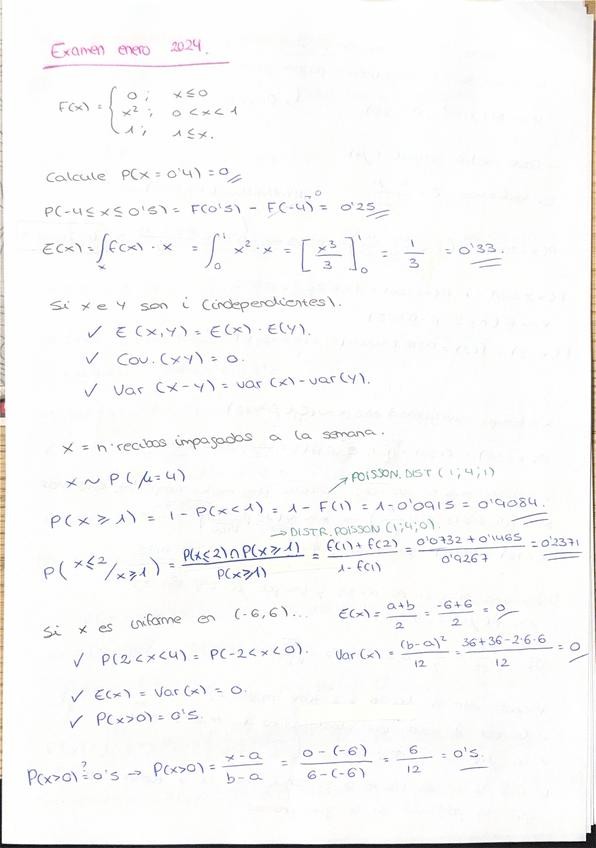 Examen enero 2024.
F(x) = { 0 ; x ≤ 0
x² ; 0 < x < 1
1 ; 1 ≤ x.
Calcule P(X = 0'4) = 0
P(-4 ≤ x ≤ 0'5) = F(0'5) - F(-4)→0 = 0'25
E(x) = ∫x f(x) · x = ∫₀¹ x² · x = [x³/3]₀¹ = 1/3 = 0'33.
Si x e y son i (independientes).
✓ E (x,y) = E(x) · E(y).
✓ Cov. (xy) = 0.
✓ Var (x-y) = var (x) - var (y).
x = n· recibos impagados a la semana.
x ~ P( μ = 4)
↗ POISSON. DIST ( 1 ; 4 ; 1)
P( x ≥ 1) = 1 - P(x < 1) = 1 - F(1) = 1 - 0'0915 = 0'9084.
→ DISTR. POISSON (1;4;0).
P( x≤2 / x≥1 ) = P(x≤2) ∩ P(x≥1) / P(x≥1) = f(1) + f(2) / 1 - f(1) = 0'0732 + 0'1465 / 0'9267 = 0'2371
Si x es uniforme en (-6,6)... E(x) = a+b / 2 = -6+6 / 2 = 0
✓ P(2 < x < 4) = P(-2 < x < 0). Var (x) = (b-a)² / 12 = 36 + 36 - 2·6·6 / 12 = 0
✓ E(x) = Var (x) = 0.
✓ P(x>0) = 0'5.
P(x>0) ?= 0'5 → P(x>0) = x-a / b-a = 0-(-6) / 6-(-6) = 6 / 12 = 0'5.